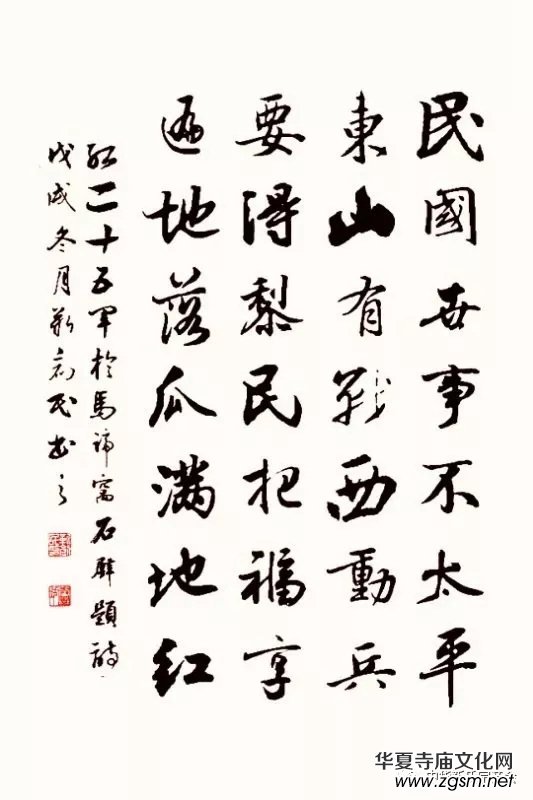 民國世事不太平
東山有戰西動兵
要得黎民把福享
遍地落瓜滿地红
红二十五軍於馬蹄窩石壁題詩
戊戌冬月靳新民书之
华夏寺庙文化网
www.zgsm.net